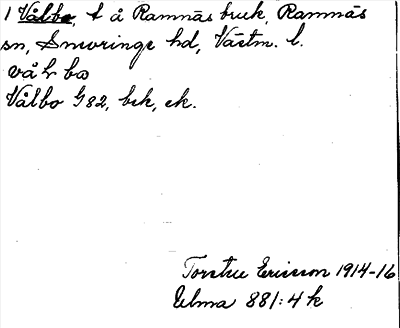 1 Vålbo, t å Ramnäs bruk, Ramnäs
sn, Snevringe hd, Västm. l.
vål bo
Vålbo G82, bek, ek.
Torsten Ericsson 1914-16
Ulma 881:4 k